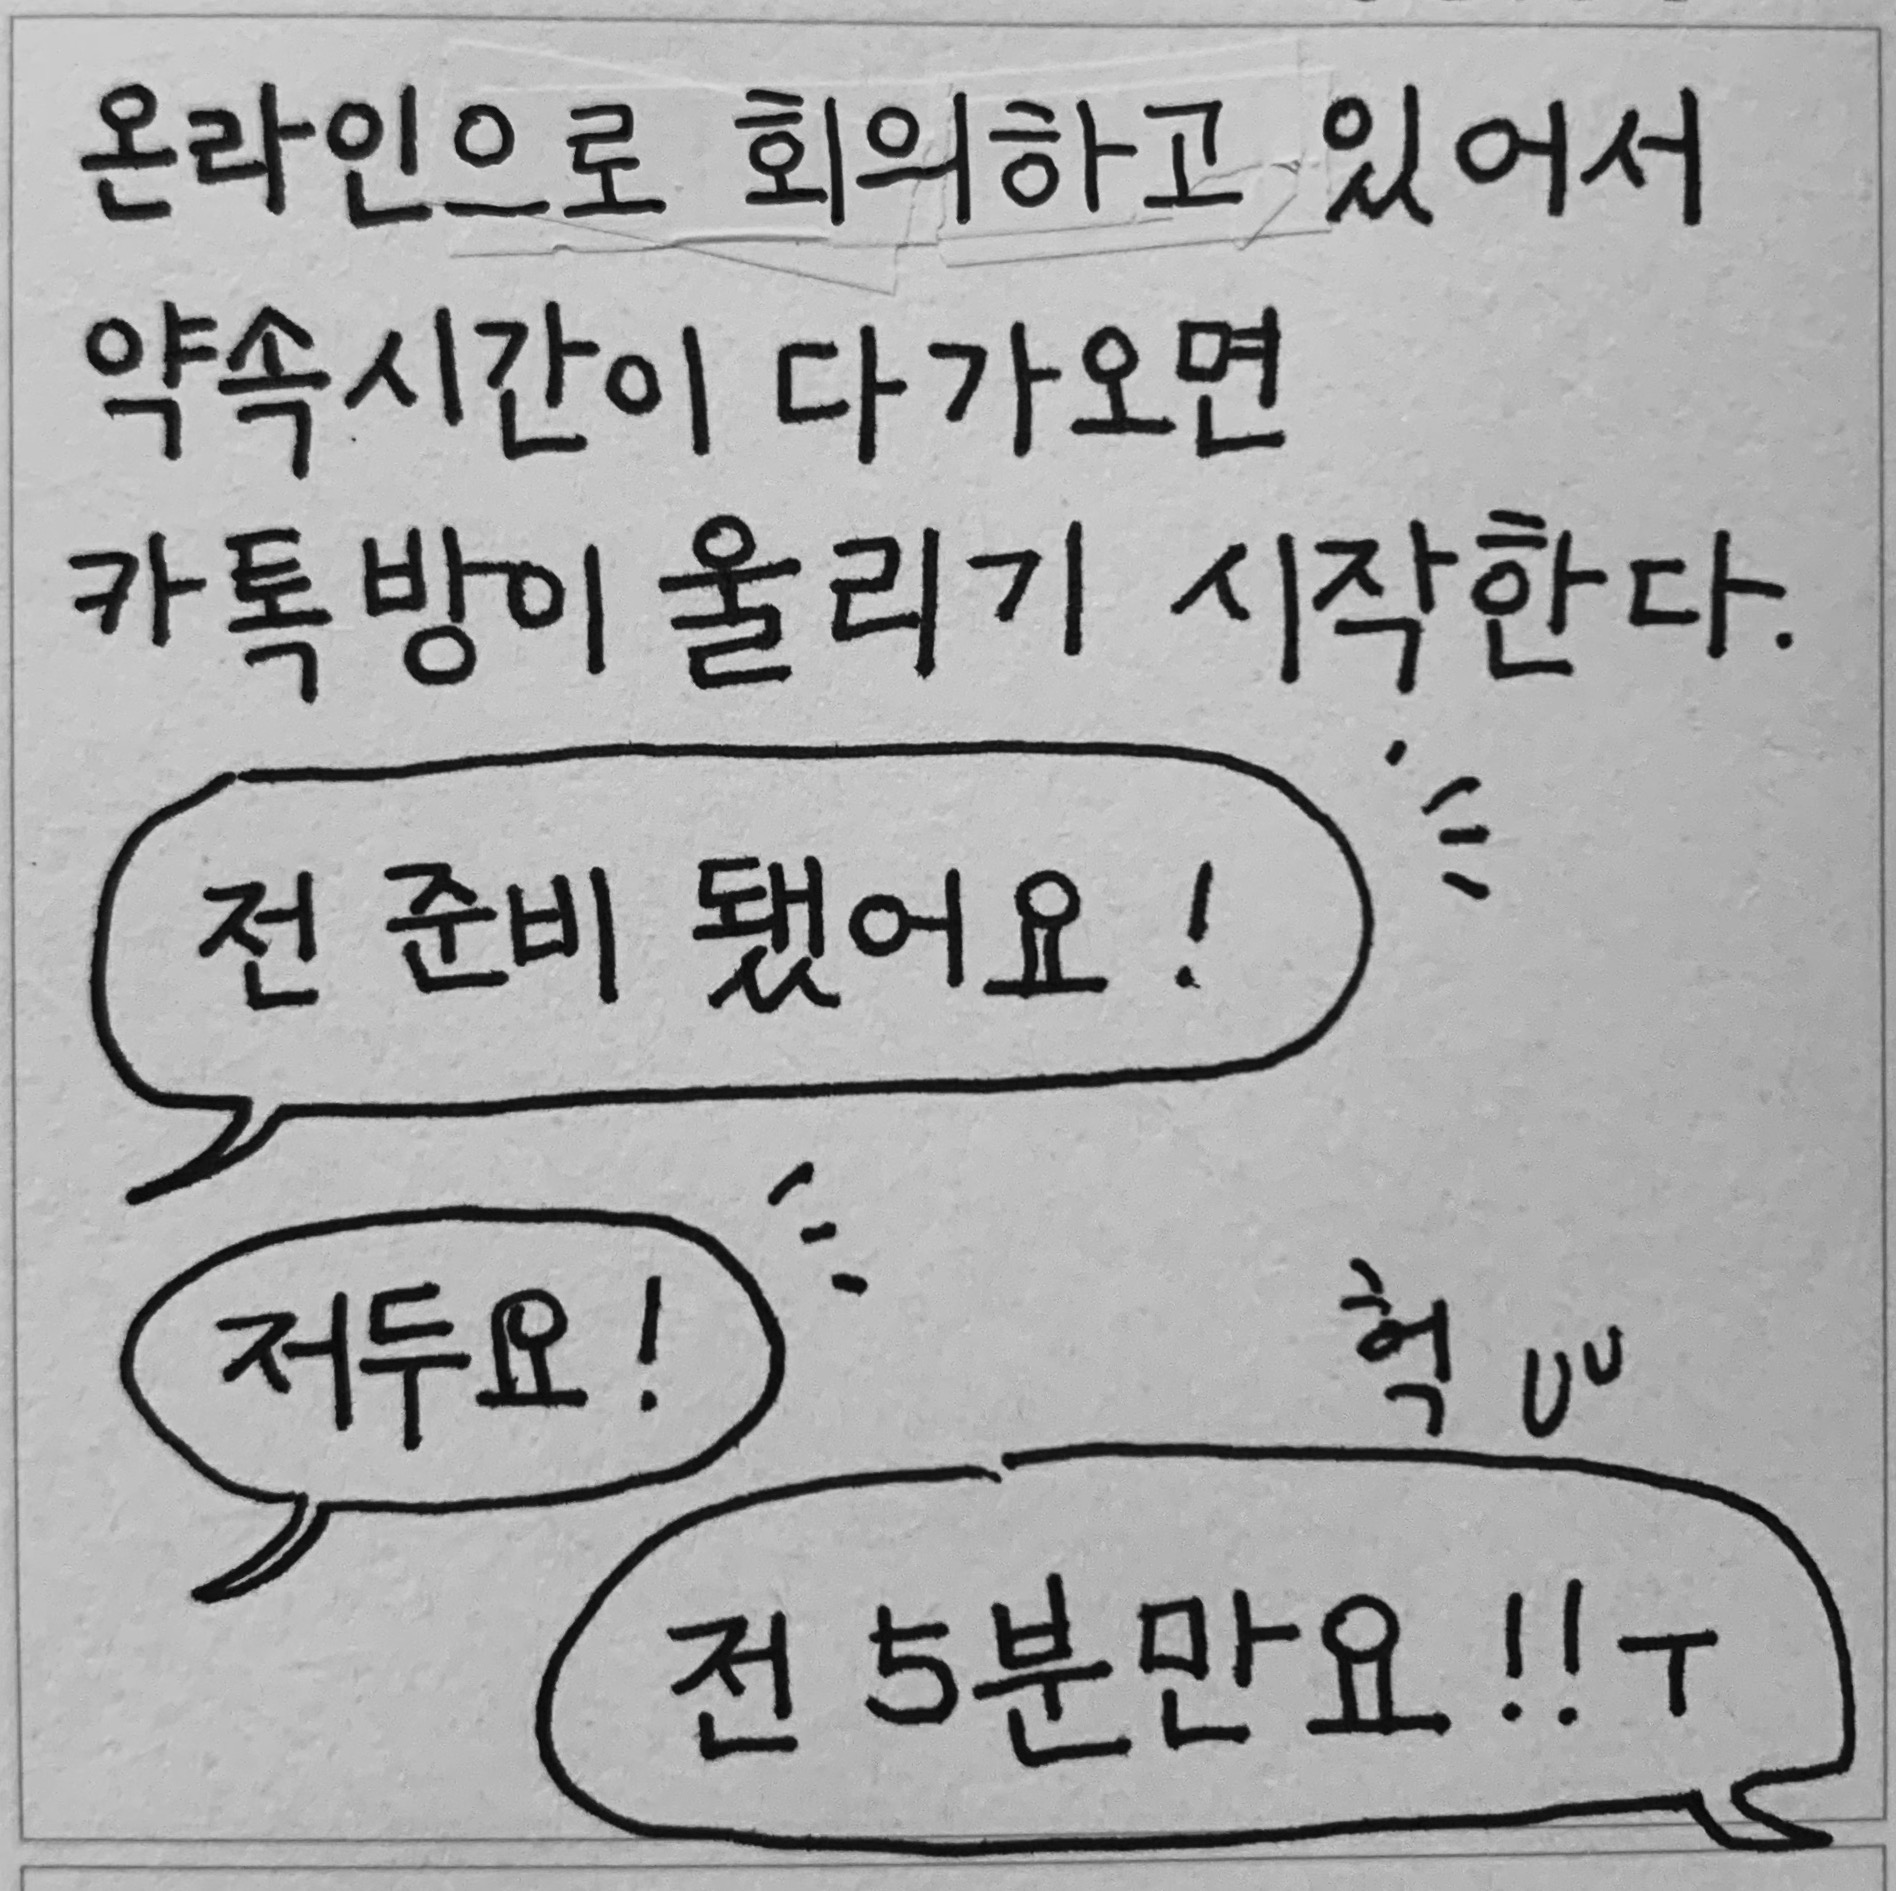 온라인으로 회의하고 있어서
약속시간이 다가오면
카톡방이 울리기 시작한다.
전 준비 됐어요!
저두요!
헉
전 5분만요!!ㅜ